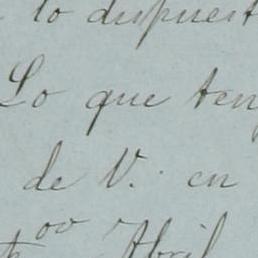 lo dispuest
Lo que ten
de V. en
Abril